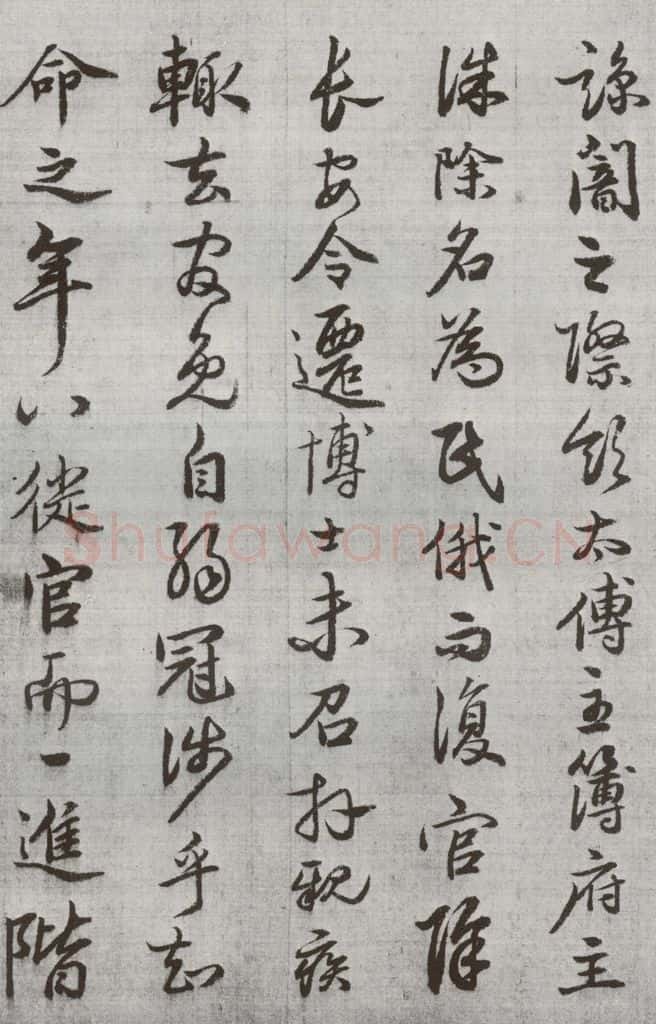 諒闇之際領太傅主簿府主
誅除名為民俄而復官除
長安令遷博士未召拜親疾
輒去官免自弱冠涉乎知
命之年八徙官而一進階
Shufawang.CN